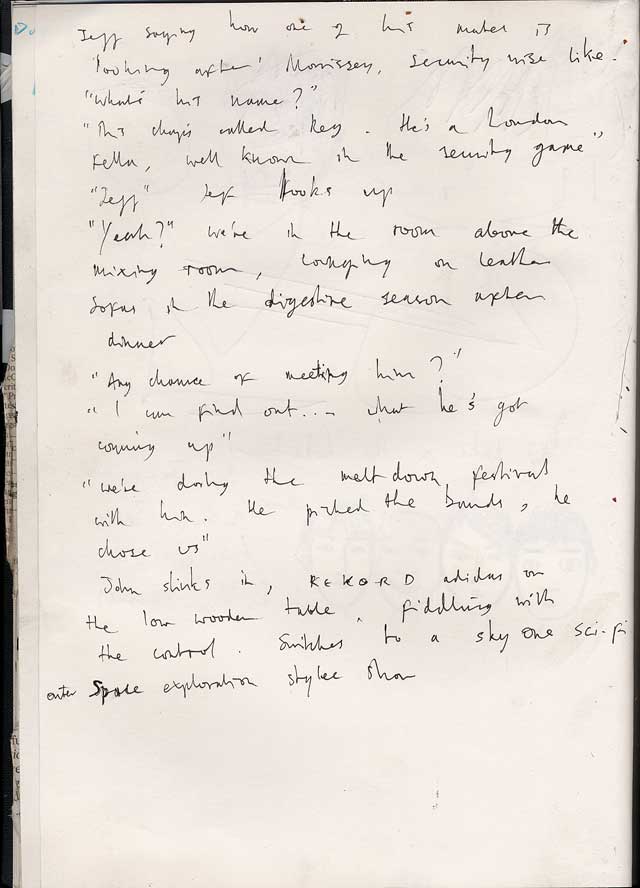 Jeff saying how one of his mates is
'looking after' Morrissey, security wise like.
"What's his name?"
"This chap's called Key. He's a London
fella, well known in the security game"
"Jeff" Jeff looks up
"Yeah?" we're in the room above the
mixing room, lounging on leather
sofas in the digestive season after
dinner
"Any chance of meeting him?"
"I can find out... what he's got
coming up"
"we're doing the meltdown festival
with him. He picked the bands, he
chose us"
John slinks in, REKORD adidas on
the low wooden table, fiddling with
the control. Switches to a sky one sci-fi
outer space exploration stylee show